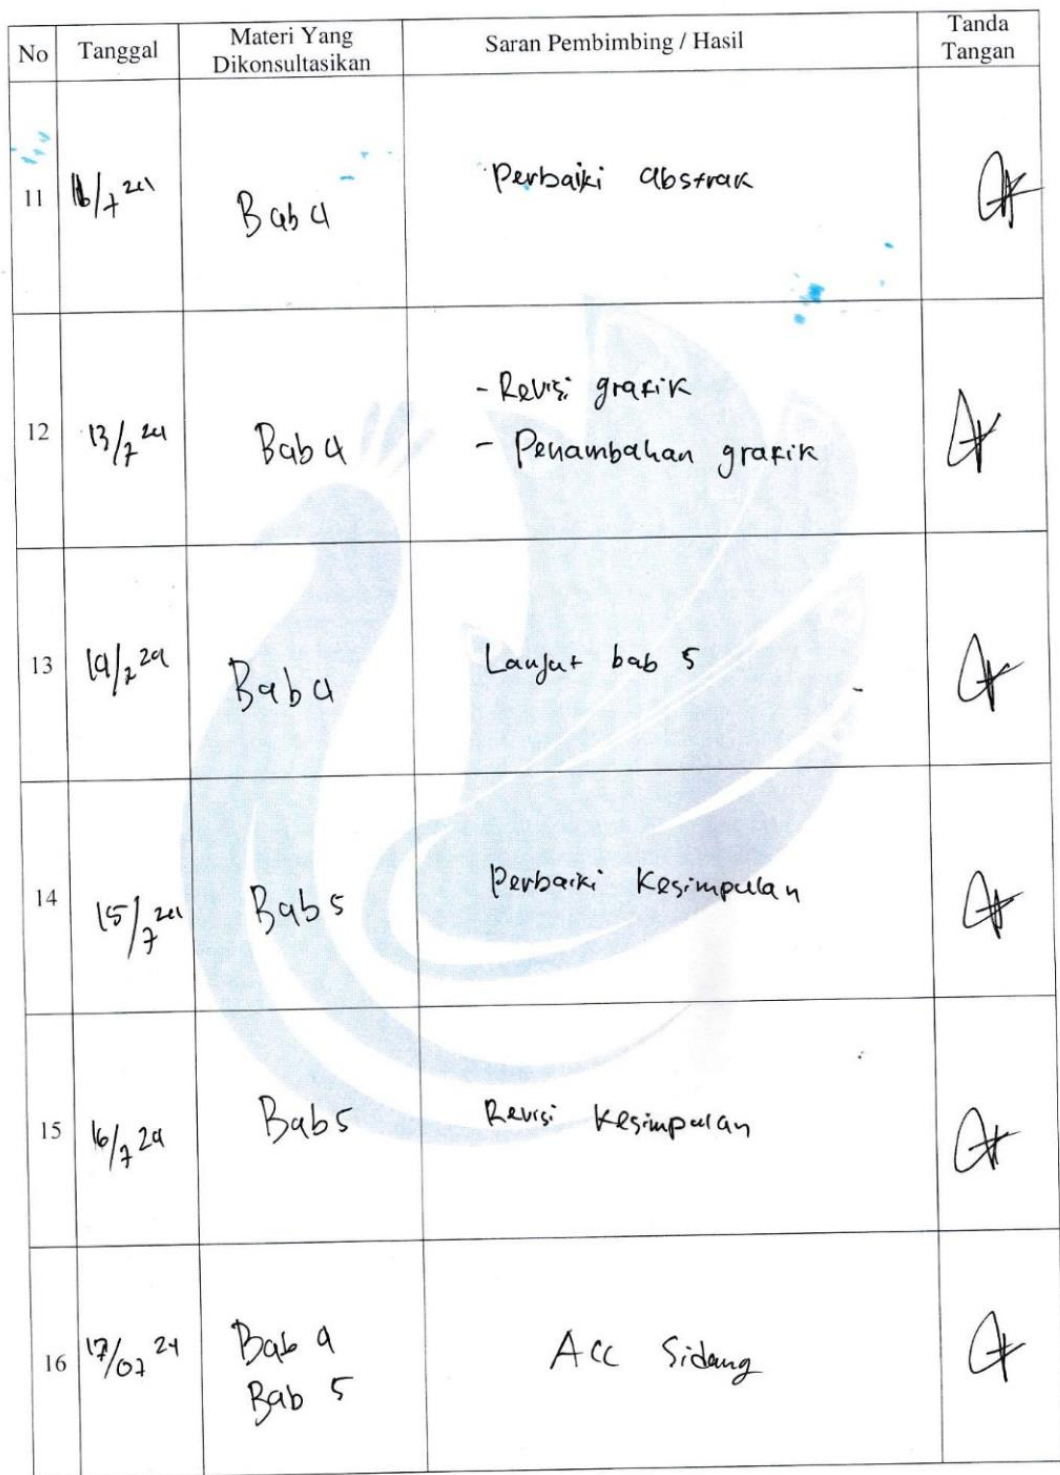 No Tanggal Materi Yang Dikonsultasikan Saran Pembimbing / Hasil Tanda Tangan
11 /7 24 Bab 4 Perbaiki abstrak
12 13/7 24 Bab 4 - Revisi grafik
- Penambahan grafik
13 14/7 24 Bab 4 Lanjut bab 5
14 15/7 24 Bab 5 Perbaiki Kesimpulan
15 16/7 24 Bab 5 Revisi Kesimpulan
16 17/07 24 Bab 4
Bab 5
Acc Sidang